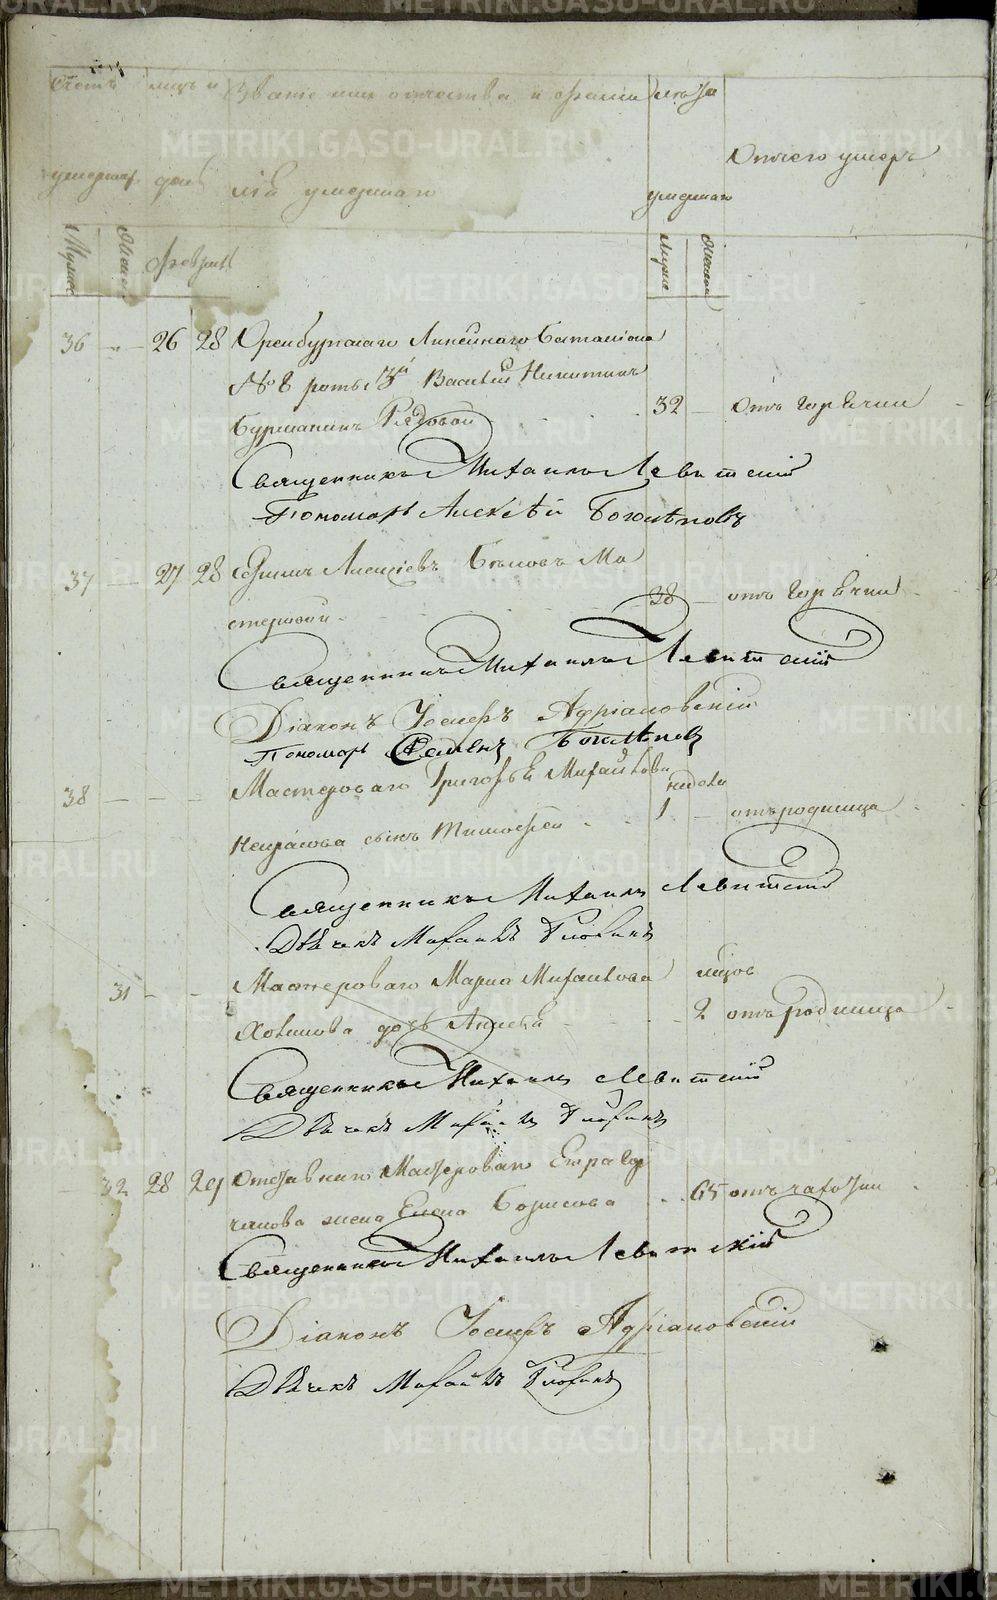 Счетъ мѣсяцъ и Званіе имя отчества и фами Лета
умершихъ день лія умершаго умершаго Отчего умеръ
Мужескъ Женскъ Февраль Мужск Женскъ
36 26 28 Оренбургскаго Линейнаго Баталіона
№ 8 роты 3й Василій Никитинъ
Рядовой 32 Отъ горячки
Священникъ Михаилъ Левитскій
Пономарь Алексѣй Боголѣповъ
37 27 28 Алексѣевъ Бѣловъ Ма
стеровой 38 отъ горячки
Священникъ Михаилъ Левитскій
Діаконъ Іосифъ Адріановскій
Пономарь Семенъ Боголѣповъ
38 Мастероваго Григорья Михайлова недели
Некрасова сынъ Тимофей 1 отъ родимца
Священникъ Михаилъ Левитскій
Дьячекъ Михаилъ
31 Мастероваго Марка Михайлова месяцъ
дочь 2 отъ родимца
Священникъ Михаилъ Левитскій
Дьячекъ Михаилъ
32 28 29 Отставнаго Мастероваго
жена Елена Борисова 65 отъ чахотки
Священникъ Михаилъ Левитскій
Діаконъ Іосифъ Адріановскій
Дьячекъ Михаилъ
METRIKI.GASO-URAL.RU